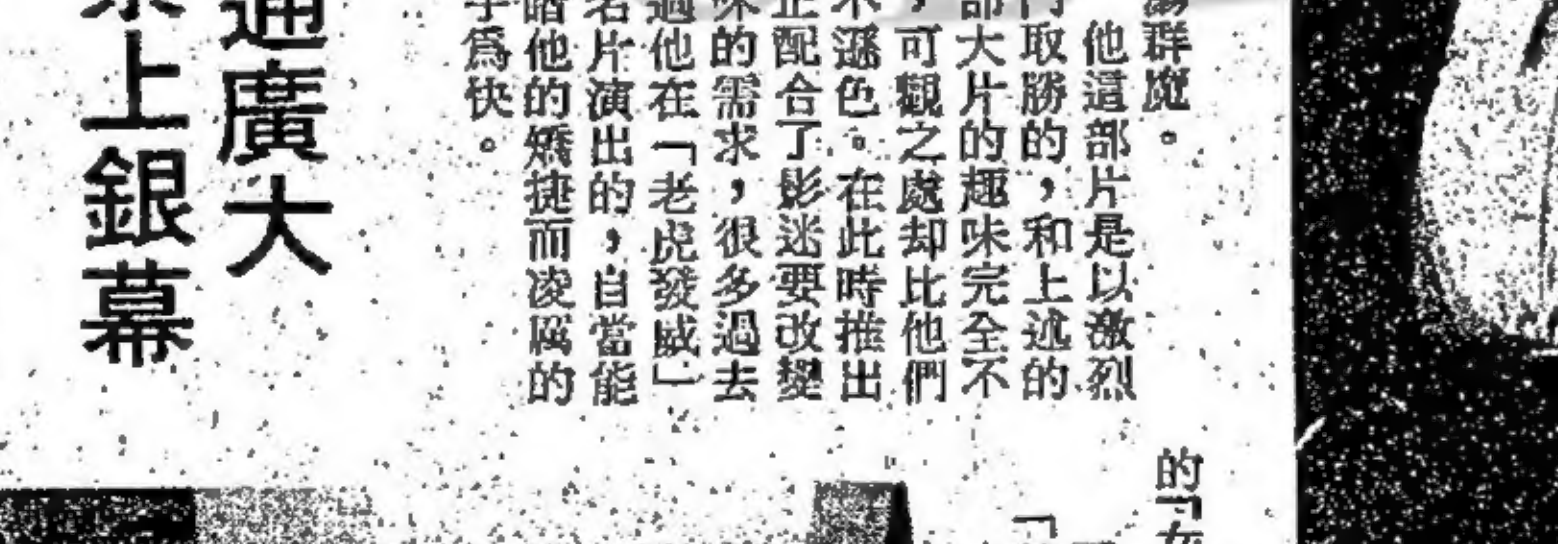 群魔。
他這部片是以激烈
取勝的，和上述的
部大片的趣味完全不
，可觀之處却比他們
不遜色。在此時推出
正配合了影迷要改變
味的需求，很多過去
過他在「老虎發威」
名片演出的，自當能
睹他的矯捷而凌厲的
爲快。
通廣大
上銀幕
的「女
「